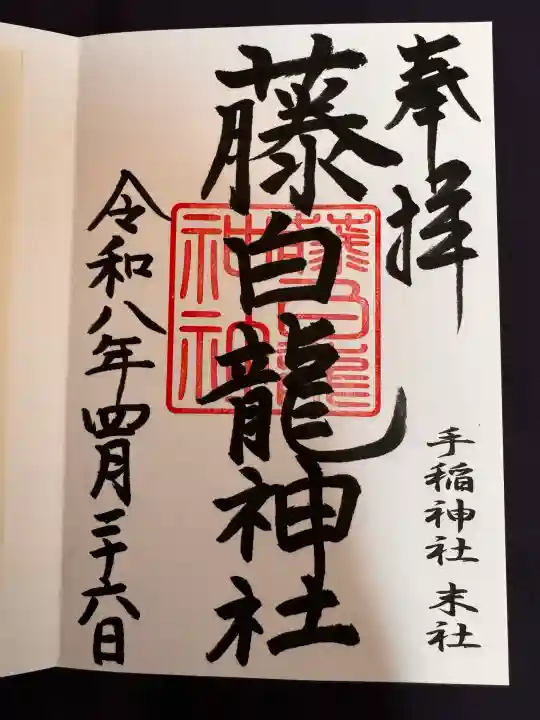 奉拝
手稲神社 末社
藤白龍神社
藤白龍
神社
令和八年四月二十六日